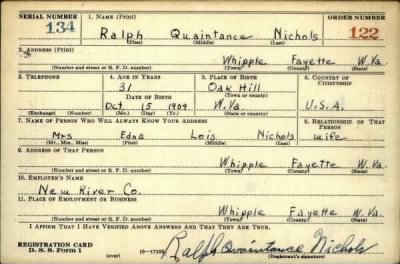 SERIAL NUMBER 1. NAME (Print) ORDER NUMBER
134 Ralph Quaintance Nichols 122
(First) (Middle) (Last)
2. ADDRESS (Print)
Whipple Fayette W.Va.
(Number and street or R. F. D. number) (Town) (County) (State)
3. TELEPHONE 4. AGE IN YEARS 5. PLACE OF BIRTH 6. COUNTRY OF CITIZENSHIP
31 Oak Hill
DATE OF BIRTH (Town or county)
Oct 15 1909 W.Va. U.S.A.
(Exchange) (Number) (Mo.) (Day) (Yr.) (State or country)
7. NAME OF PERSON WHO WILL ALWAYS KNOW YOUR ADDRESS 8. RELATIONSHIP OF THAT PERSON
Mrs Edna Lois Nichols wife
(Mr., Mrs., Miss) (First) (Middle) (Last)
9. ADDRESS OF THAT PERSON
Whipple Fayette W.Va.
(Number and street or R. F. D. number) (Town) (County) (State)
10. EMPLOYER'S NAME
New River Co.
11. PLACE OF EMPLOYMENT OR BUSINESS
Whipple Fayette W.Va.
(Number and street or R. F. D. number) (Town) (County) (State)
I AFFIRM THAT I HAVE VERIFIED ABOVE ANSWERS AND THAT THEY ARE TRUE.
REGISTRATION CARD
D. S. S. Form 1 (over) Ralph Quaintance Nichols
(Registrant's signature)